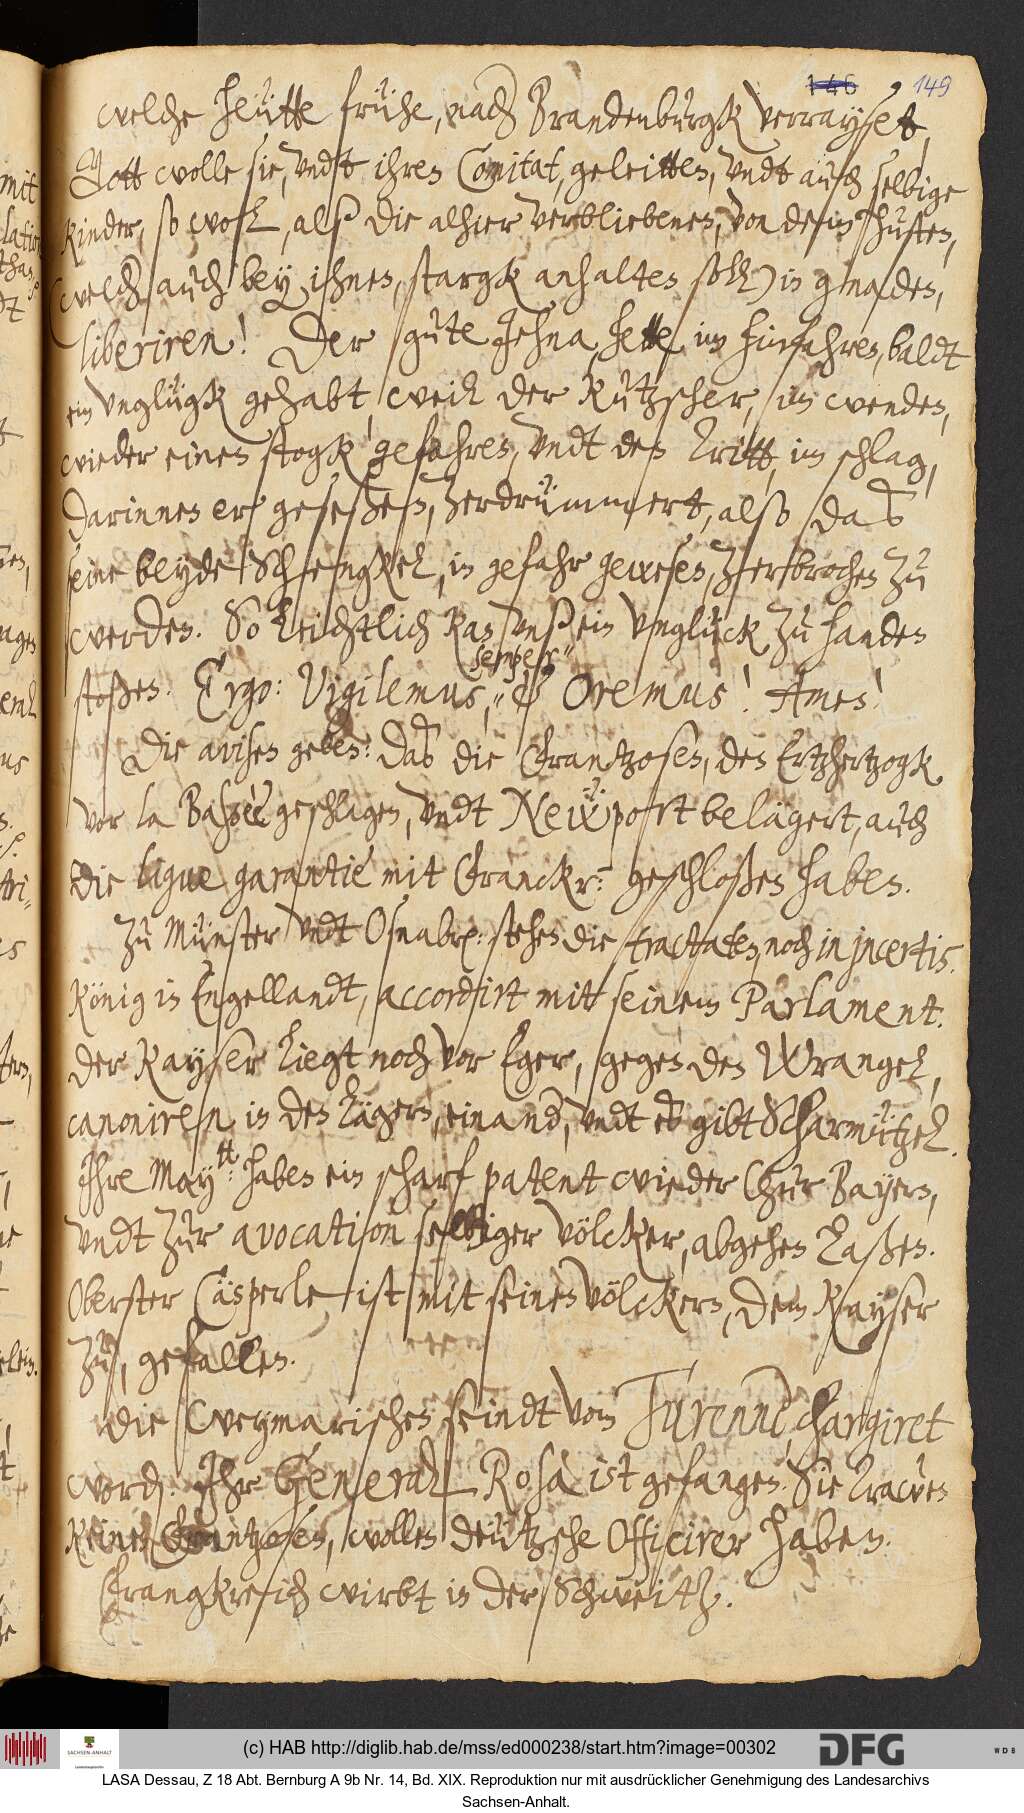 146 149
welche heütte frühe, nach Brandenburgk verrayset,
Gott wolle sie, vndt ihren Comitat, geleitten, vndt auch selbige
kinder, so wol, alß die alhier verbliebenen, von dem husten,
(welch auch bey ihnen, stargk anhalten soll) in gnaden,
liberiren! Der gute Jehna hette, im hinfahren, baldt
ein vnglügk gehabt, weil der Kutzscher, im wenden,
wieder einen stogk gefahren, vndt den tritt, im schlag,
darinnen er geseßen, zerdrümmert, also daß
seine beyde Schengkel, in gefahr gewesen, zerbrochen zu
werden. So leichtlich kan vnß ein vnglück zu handen
semper
stoßen. Ergo: Vigilemus, & Oremus! Amen!
Die avisen geben: daß die Frantzosen, den Ertzhertzogk
vor la Bassée geschlagen, vndt Neüport belägert, auch
die ligue garantie mit Franckr: geschloßen haben.
Zu Münster vndt Osnabr: stehen die tractaten, noch in incertis.
König in Engellandt, accordirt mitt seinem Parlament.
Der Kayser liegt noch vor Eger, gegen den Wrangel,
canoniren in den Lägern, einand, vndt eß gibt Scharmützel.
Ihre Maytt: haben ein scharf patent wieder Chur Bayern,
vndt zur avocation selbiger völcker, abgehen laßen.
Oberster Casperle ist mit seinen völckern, dem Kayser
zu, gefallen.
Die Weymarischen seindt von Turenne chargiret
word. Ihr General Rosa ist gefangen. Sie trawen
keinen Frantzosen, wollen deützsche Officirer haben.
Frangkreich wirbt in der Schweitz.
(c) HAB http://diglib.hab.de/mss/ed000238/start.htm?image=00302
SACHSEN-ANHALT
DFG
W D B
LASA Dessau, Z 18 Abt. Bernburg A 9b Nr. 14, Bd. XIX. Reproduktion nur mit ausdrücklicher Genehmigung des Landesarchivs
Sachsen-Anhalt.